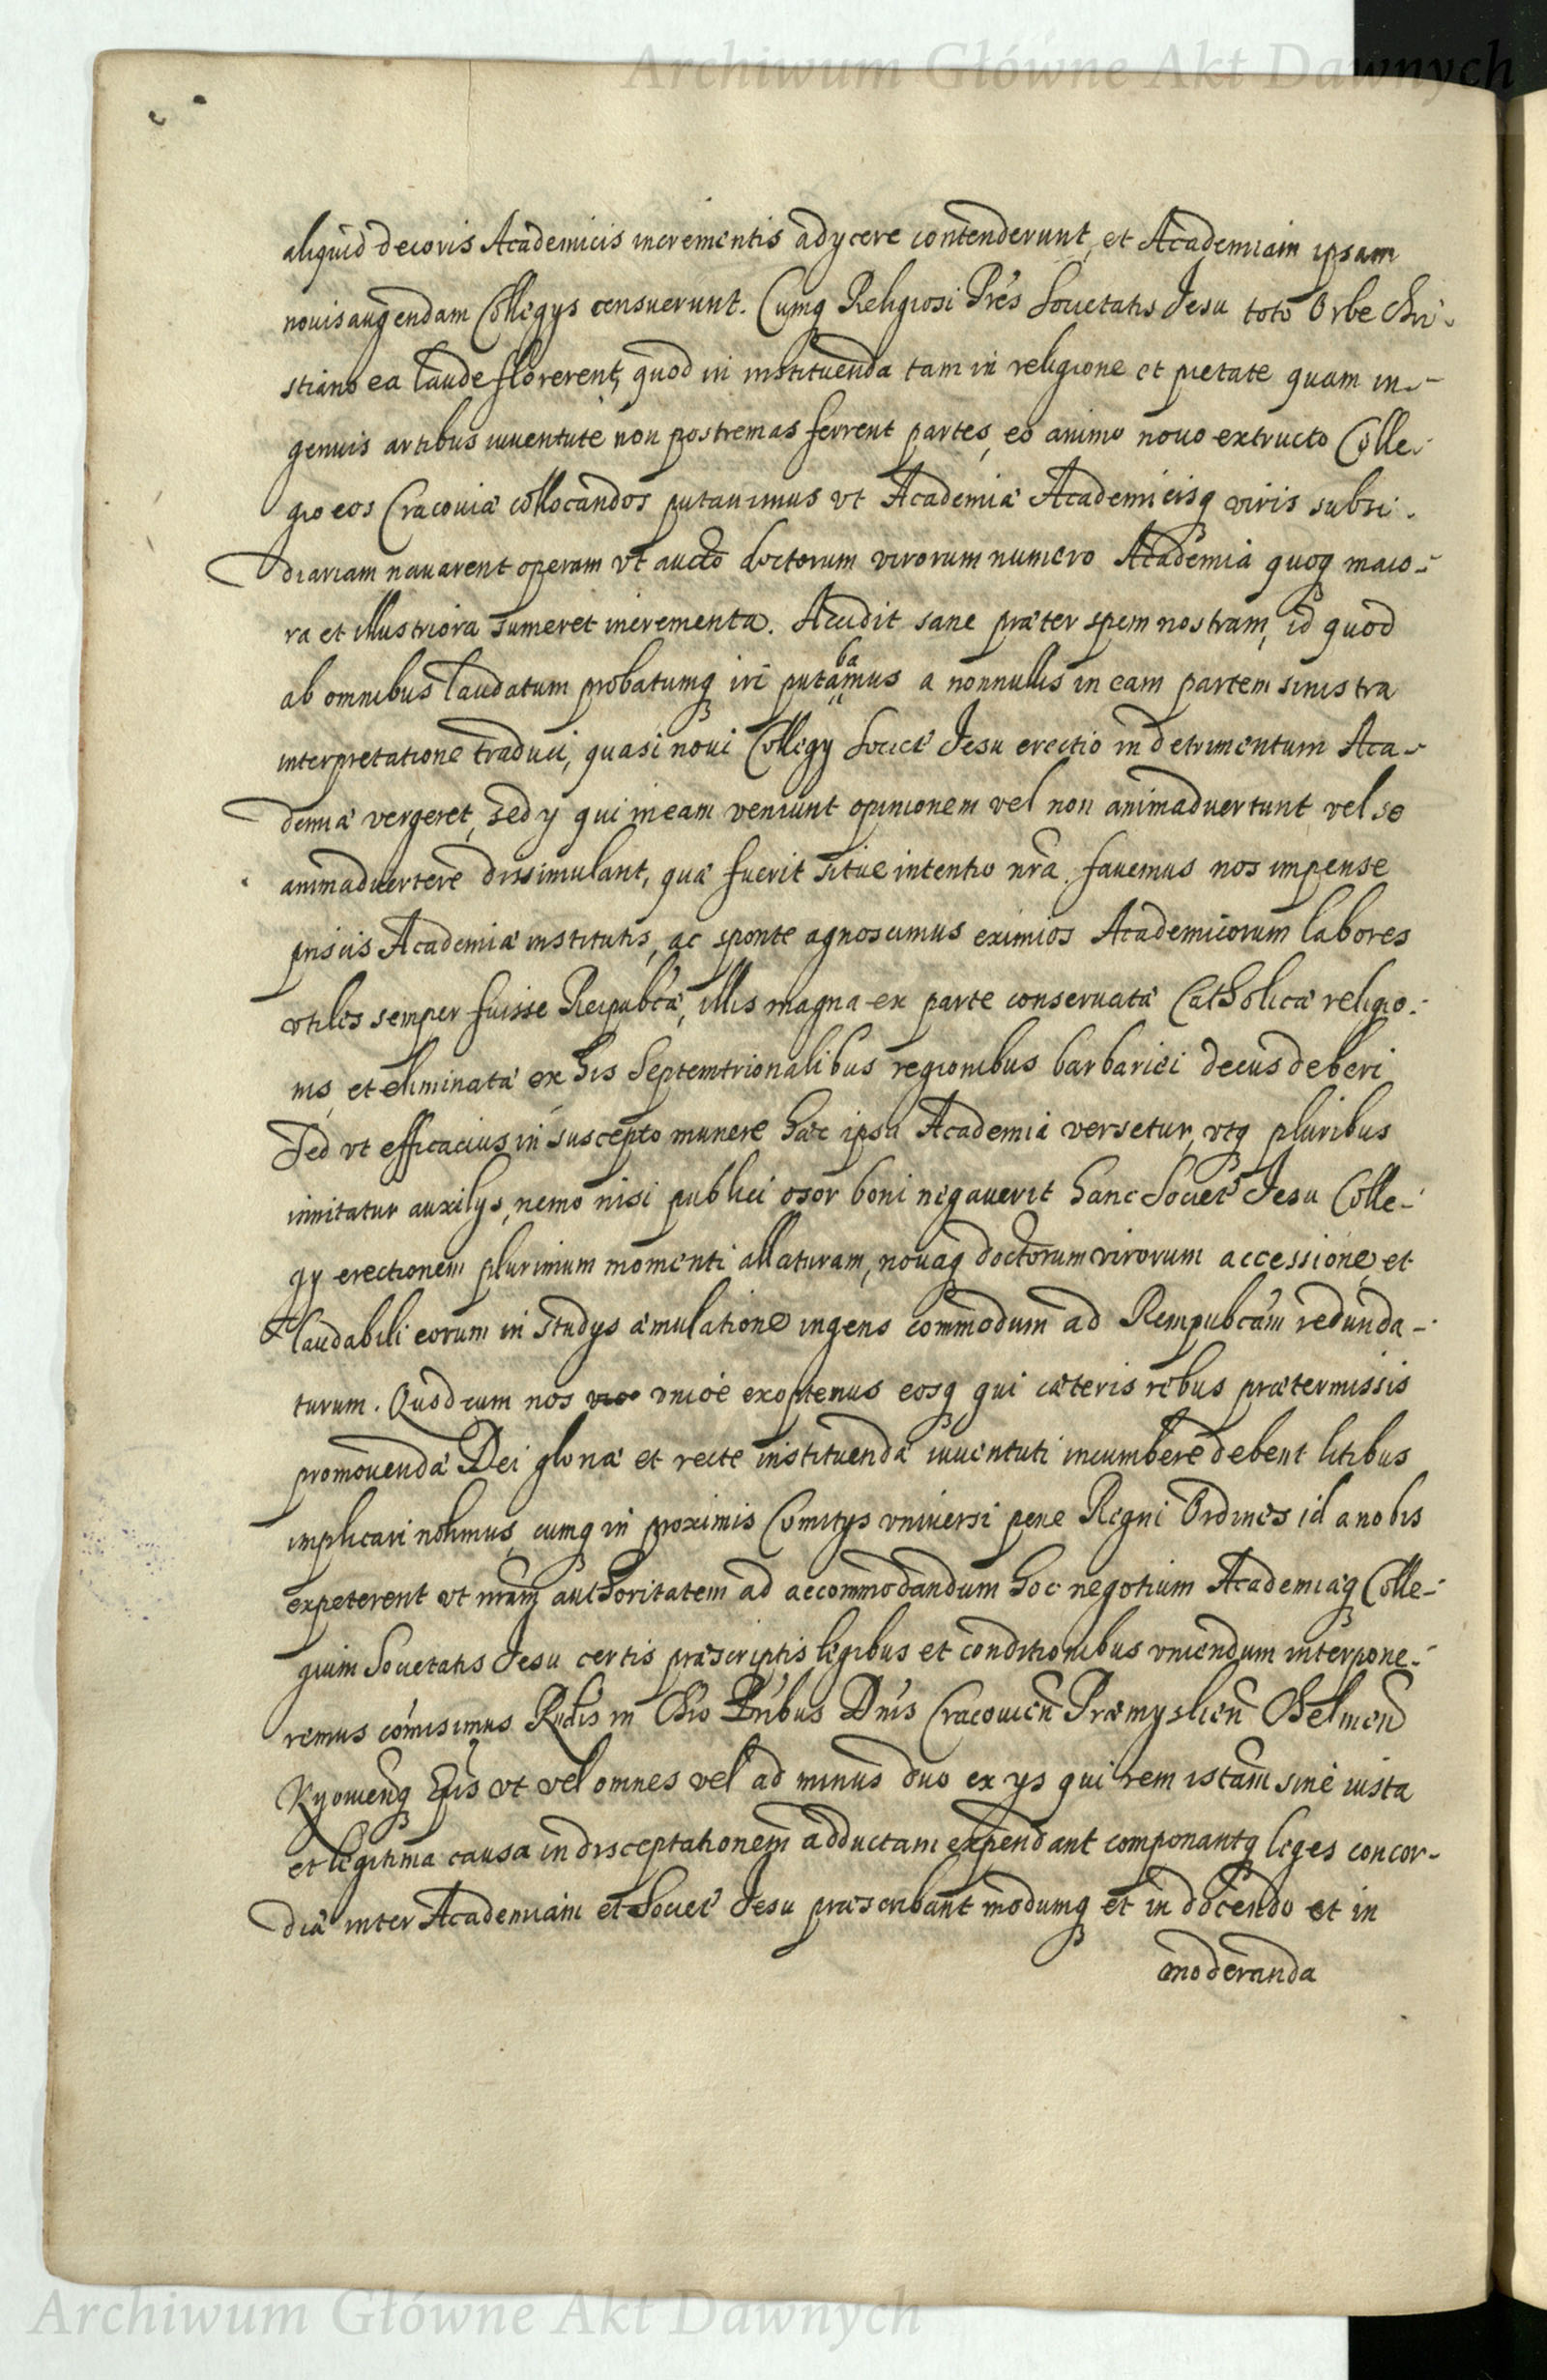 Archiwum Główne Akt Dawnych
aliquid decoris Academicis incrementis adycere contenderunt, et Academiam ipsam
nouis augendam Collegys censuerunt. Cumq Religiosi Pres Societatis Jesu toto Orbe Chri-
stiano ea laude florerent, quod in instituenda tam in religione et pietate quam in-
genuis artibus iuuentute non postremas ferrent partes, eo animo nouo extructo Colle-
gio eos Cracouiæ collocandos putauimus vt Academiæ Academicisq viris subsi-
diariam nauarent operam vt aucto doctorum virorum numero Academia quoq maio-
ra et illustriora sumeret incrementa. Accidit sane præter spem nostram, id quod
ab omnibus laudatum probatumq iri putabamus a nonnullis in eam partem sinistra
interpretatione traduci, quasi noui Collegy Societ Jesu erectio in detrimentum Aca-
demiæ vergeret, sed y qui in eam veniunt opinionem vel non animaduertunt vel se
animaduertere dissimulant, quæ fuerit situe intentio nra. fauemus nos impense
priscis Academiæ institutis, ac sponte agnoscimus eximios Academicorum labores
vtiles semper fuisse Reipubcæ, illis magna ex parte conseruatæ Catholicæ religio-
nis, et eliminatæ ex his Septemtrionalibus regionibus barbariei decus deberi
Sed vt efficacius in suscepto munere hæc ipsa Academia versetur, vtq pluribus
innitatur auxilys, nemo nisi publici osor boni negauerit hanc Societ Jesu Colle-
gy erectionem plurimum momenti allaturam, nouaq doctorum virorum accessione, et
laudabili eorum in studys æmulatione ingens commodum ad Rempubcam redunda-
turum. Quod cum nos vnice exoptemus eosq qui cæteris rebus prætermissis
promouendæ Dei gloriæ et recte instituendæ iuuentuti incumbere debent litibus
implicari nolimus, cumq in proximis Comitys vniuersi pene Regni Ordines id a nobis
expeterent vt nram authoritatem ad accommodandum hoc negotium Academiæq Colle-
gium Societatis Jesu certis præscriptis legibus et conditionibus vniendum interpone-
remus comisimus Rndis in Chro Pribus Dnis Cracouien Præmyslien Chelmen
Kyouienq Epis vt vel omnes vel ad minus duo ex ys qui rem istam sine iusta
et legitima causa in disceptationem adductam expendant componantq leges concor-
diæ inter Academiam et Societ Jesu præscribant modumq et in docendo et in
moderanda
Archiwum Główne Akt Dawnych